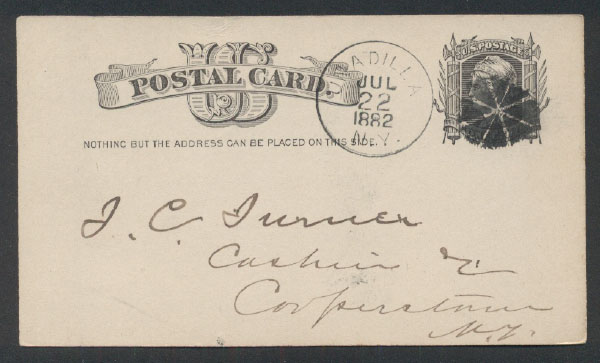 US
POSTAL CARD.
U.S. POSTAGE
NOTHING BUT THE ADDRESS CAN BE PLACED ON THIS SIDE.
ADILLA
JUL
22
1882
N.Y.
Turner
Cashier &c
Cooperstown
N.Y.